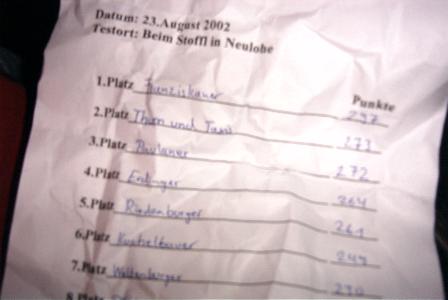 Datum: 23.August 2002
Testort: Beim Stoffl in Neulohe
Punkte
1.Platz Franziskaner 297
2.Platz Thurn und Taxis 273
3.Platz Paulaner 272
4.Platz Erdinger 264
5.Platz Riedenburger 261
6.Platz Kuchelbauer 249
7.Platz Weltenburger
8.Platz